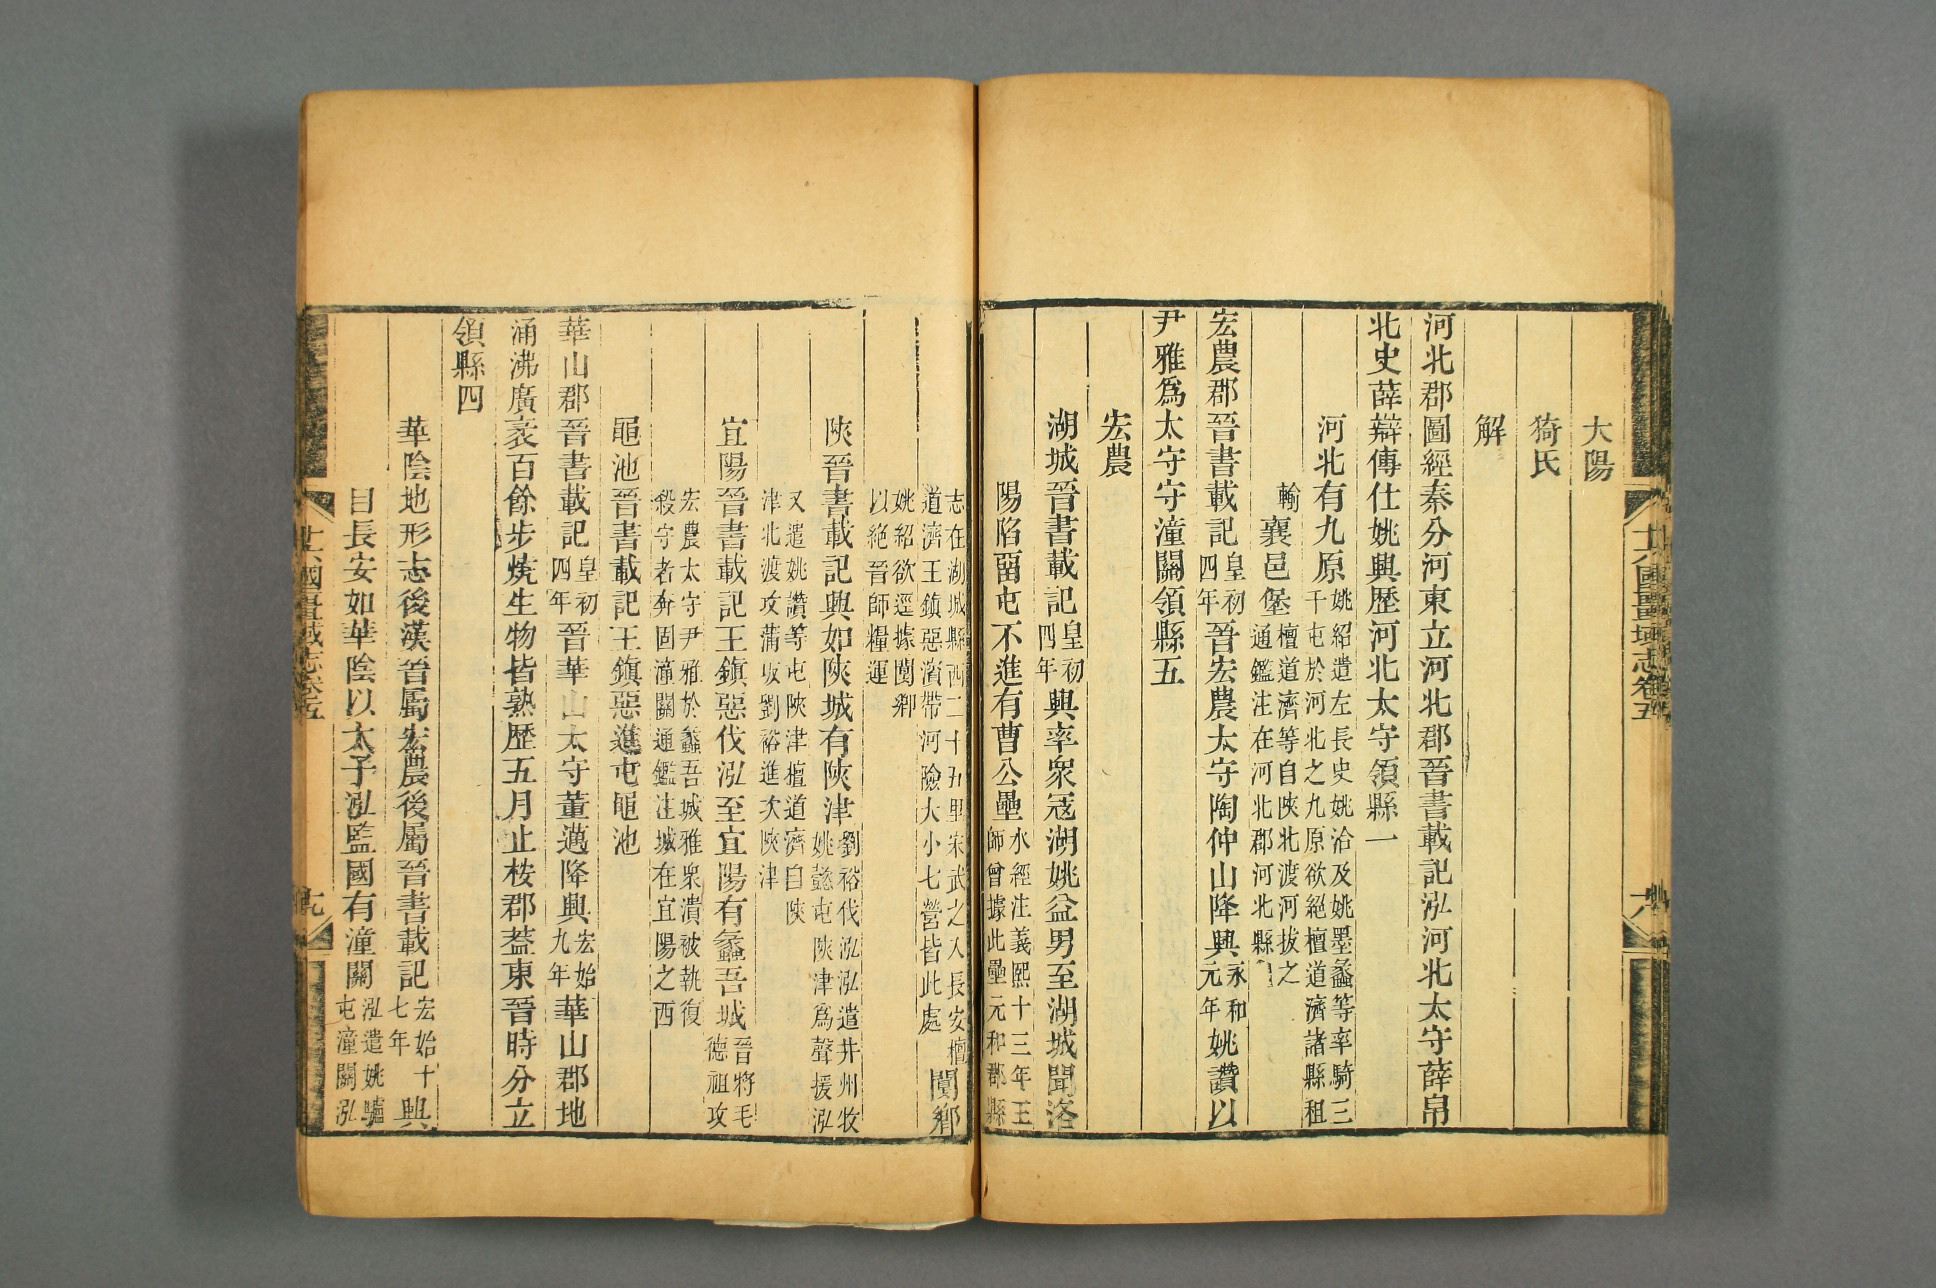 大陽
猗氏
解
河北郡圖經秦分河東立河北郡晉書載記泓河北太守薛帛
北史薛辯傳仕姚興歷河北太守領縣一
河北有九原姚紹遣左長史姚洽及姚墨蠡等率騎三
千屯於河北之九原欲絕檀道濟諸縣租
輸襄邑堡檀道濟等自陜北渡河拔之
通鑑注在河北郡河北縣
宏農郡晉書載記皇初四年晉宏農太守陶仲山降興永和元年姚讚以
尹雅爲太守守潼關領縣五
宏農
湖城晉書載記皇初四年興率衆寇湖姚益男至湖城聞洛
陽陷畱屯不進有曹公壘水經注義熙十三年王
師曾據此壘元和郡縣
志在湖城縣西二十五里宋武之入長安檀
道濟王鎮惡濱帶河險大小七營皆此處
閺鄉
姚紹欲逕據閺鄉
以絕晉師糧運
陜晉書載記興如陜城有陜津劉裕伐泓泓遣井州牧
姚懿屯陜津爲聲援泓
又遣姚讚等屯陜津檀道濟自陜
津北渡攻蒲坂劉裕進次陜津
宜陽晉書載記王鎮惡伐泓至宜陽有蠡吾城晉將毛
德祖攻
宏農太守尹雅於蠡吾城雅衆潰被執復
殺守者奔固潼關通鑑注城在宜陽之西
黽池晉書載記王鎮惡進屯黽池
華山郡晉書載記皇初四年晉華山太守董邁降興宏始九年華山郡地
涌沸廣袤百餘步燒生物皆熟歷五月止桉郡葢東晉時分立
領縣四
華陰地形志後漢晉屬宏農後屬晉書載記宏始十七年興
目長安如華陰以太子泓監國有潼關泓遣姚驢
屯潼關泓
十六國疆域志卷五
六
十六國疆域志卷五
七